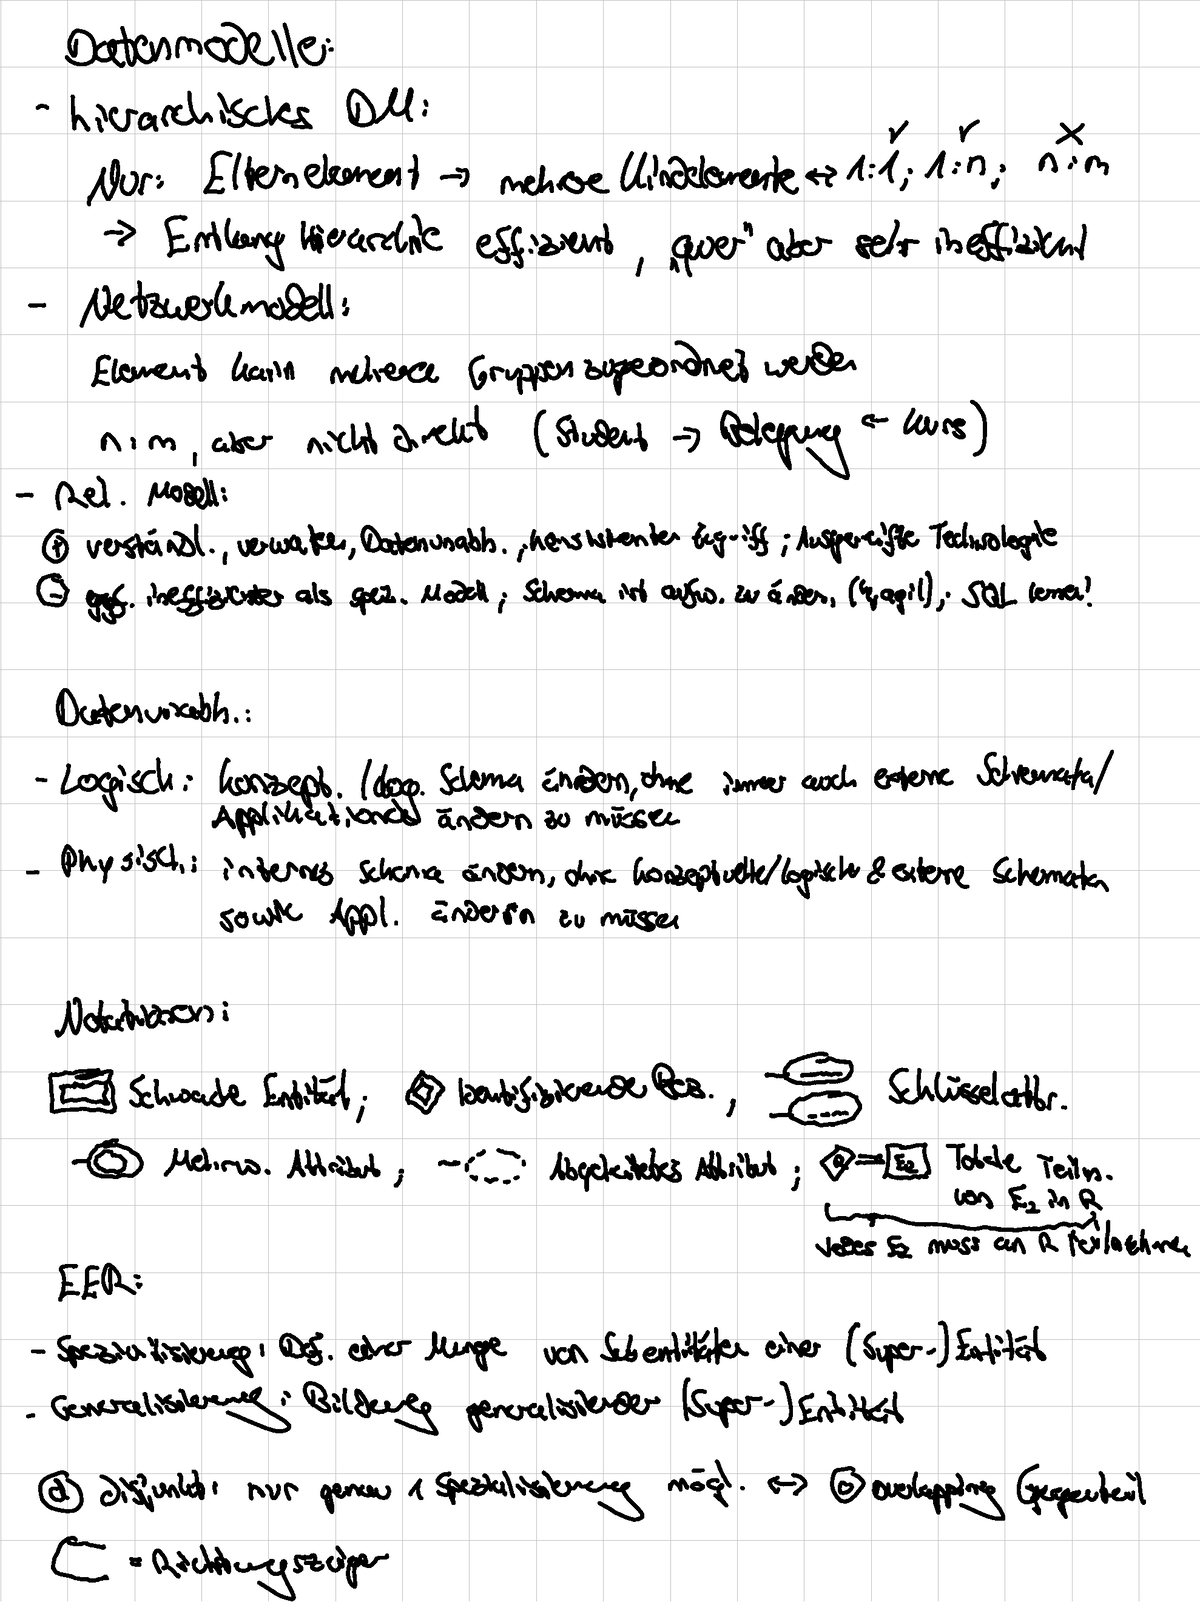 Datenmodelle:
- hierarchisches DM:
Nur: Elternelement → mehrere Kindelemente ↔ 1:1; 1:n; n:m
→ Entlang Hierarchie effizient, „quer" aber sehr ineffizient
- Netzwerkmodell:
Element kann mehrere Gruppen zugeordnet werden
n:m, aber nicht direkt (Student → Belegung ← Kurs)
- Rel. Modell:
⊕ verständl., verwalten, Datenunabh., konsistenter Zugriff; Ausgereifte Technologie
⊖ ggf. ineffizienter als spez. Modell; Schema ist aufw. zu ändern, agil); SQL lernen!
Datenunabh.:
- Logisch: konzept./log. Schema ändern, ohne immer auch externe Schemata/
Applikationen ändern zu müssen
- Physisch: internes Schema ändern, ohne konzeptuelle/logische & externe Schemata
sowie Appl. ändern zu müssen
Notationen:
Schwache Entität; Identifizierende Bez., Schlüsselattr.
Mehrw. Attribut; Abgeleitetes Attribut; R E2 Totale Teiln.
von E2 in R
Jedes E2 muss an R teilnehmen
EER:
- Spezialisierung: Def. einer Menge von Subentitäten einer (Super-)Entität
- Generalisierung: Bildung generalisierender (Super-)Entität
ⓓ disjunkt: nur genau 1 Spezialisierung mögl. ↔ ⓞ overlapping Gegenteil
⊂ = Richtungszeiger